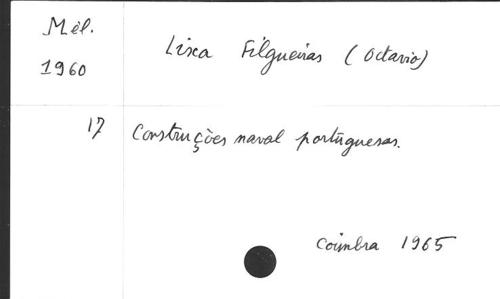 Mél.
1960
Lixa Filgueiras (Octavio)
17 Construções naval portuguesas.
Coimbra 1965